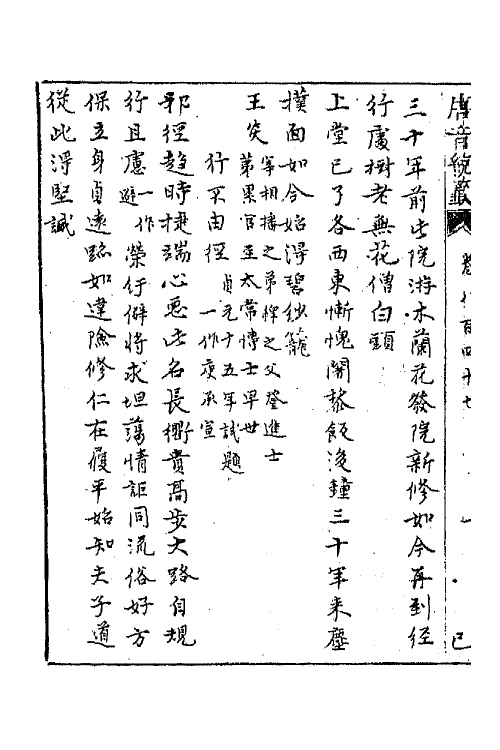 唐音統籖 卷 百四十七 一 己
三十年前此院游木蘭花發院新修如今再到經
行處樹老無花僧白頭
上堂已了各西東慚愧闍黎飯後鐘三十年來塵
撲面如今始得碧紗籠
王炎 宰相播之弟鐸之父登進士第累官至太常博士早世
行不由徑 貞元十五年試題一作庾承宣
邪徑趨時捷端心惡此名長衢貴高步大路自規
行且慮 一作避 榮行僻將求坦蕩情詎同流俗好方
保立身貞遠跡如違險修仁在履平始知夫子道
從此得堅誠